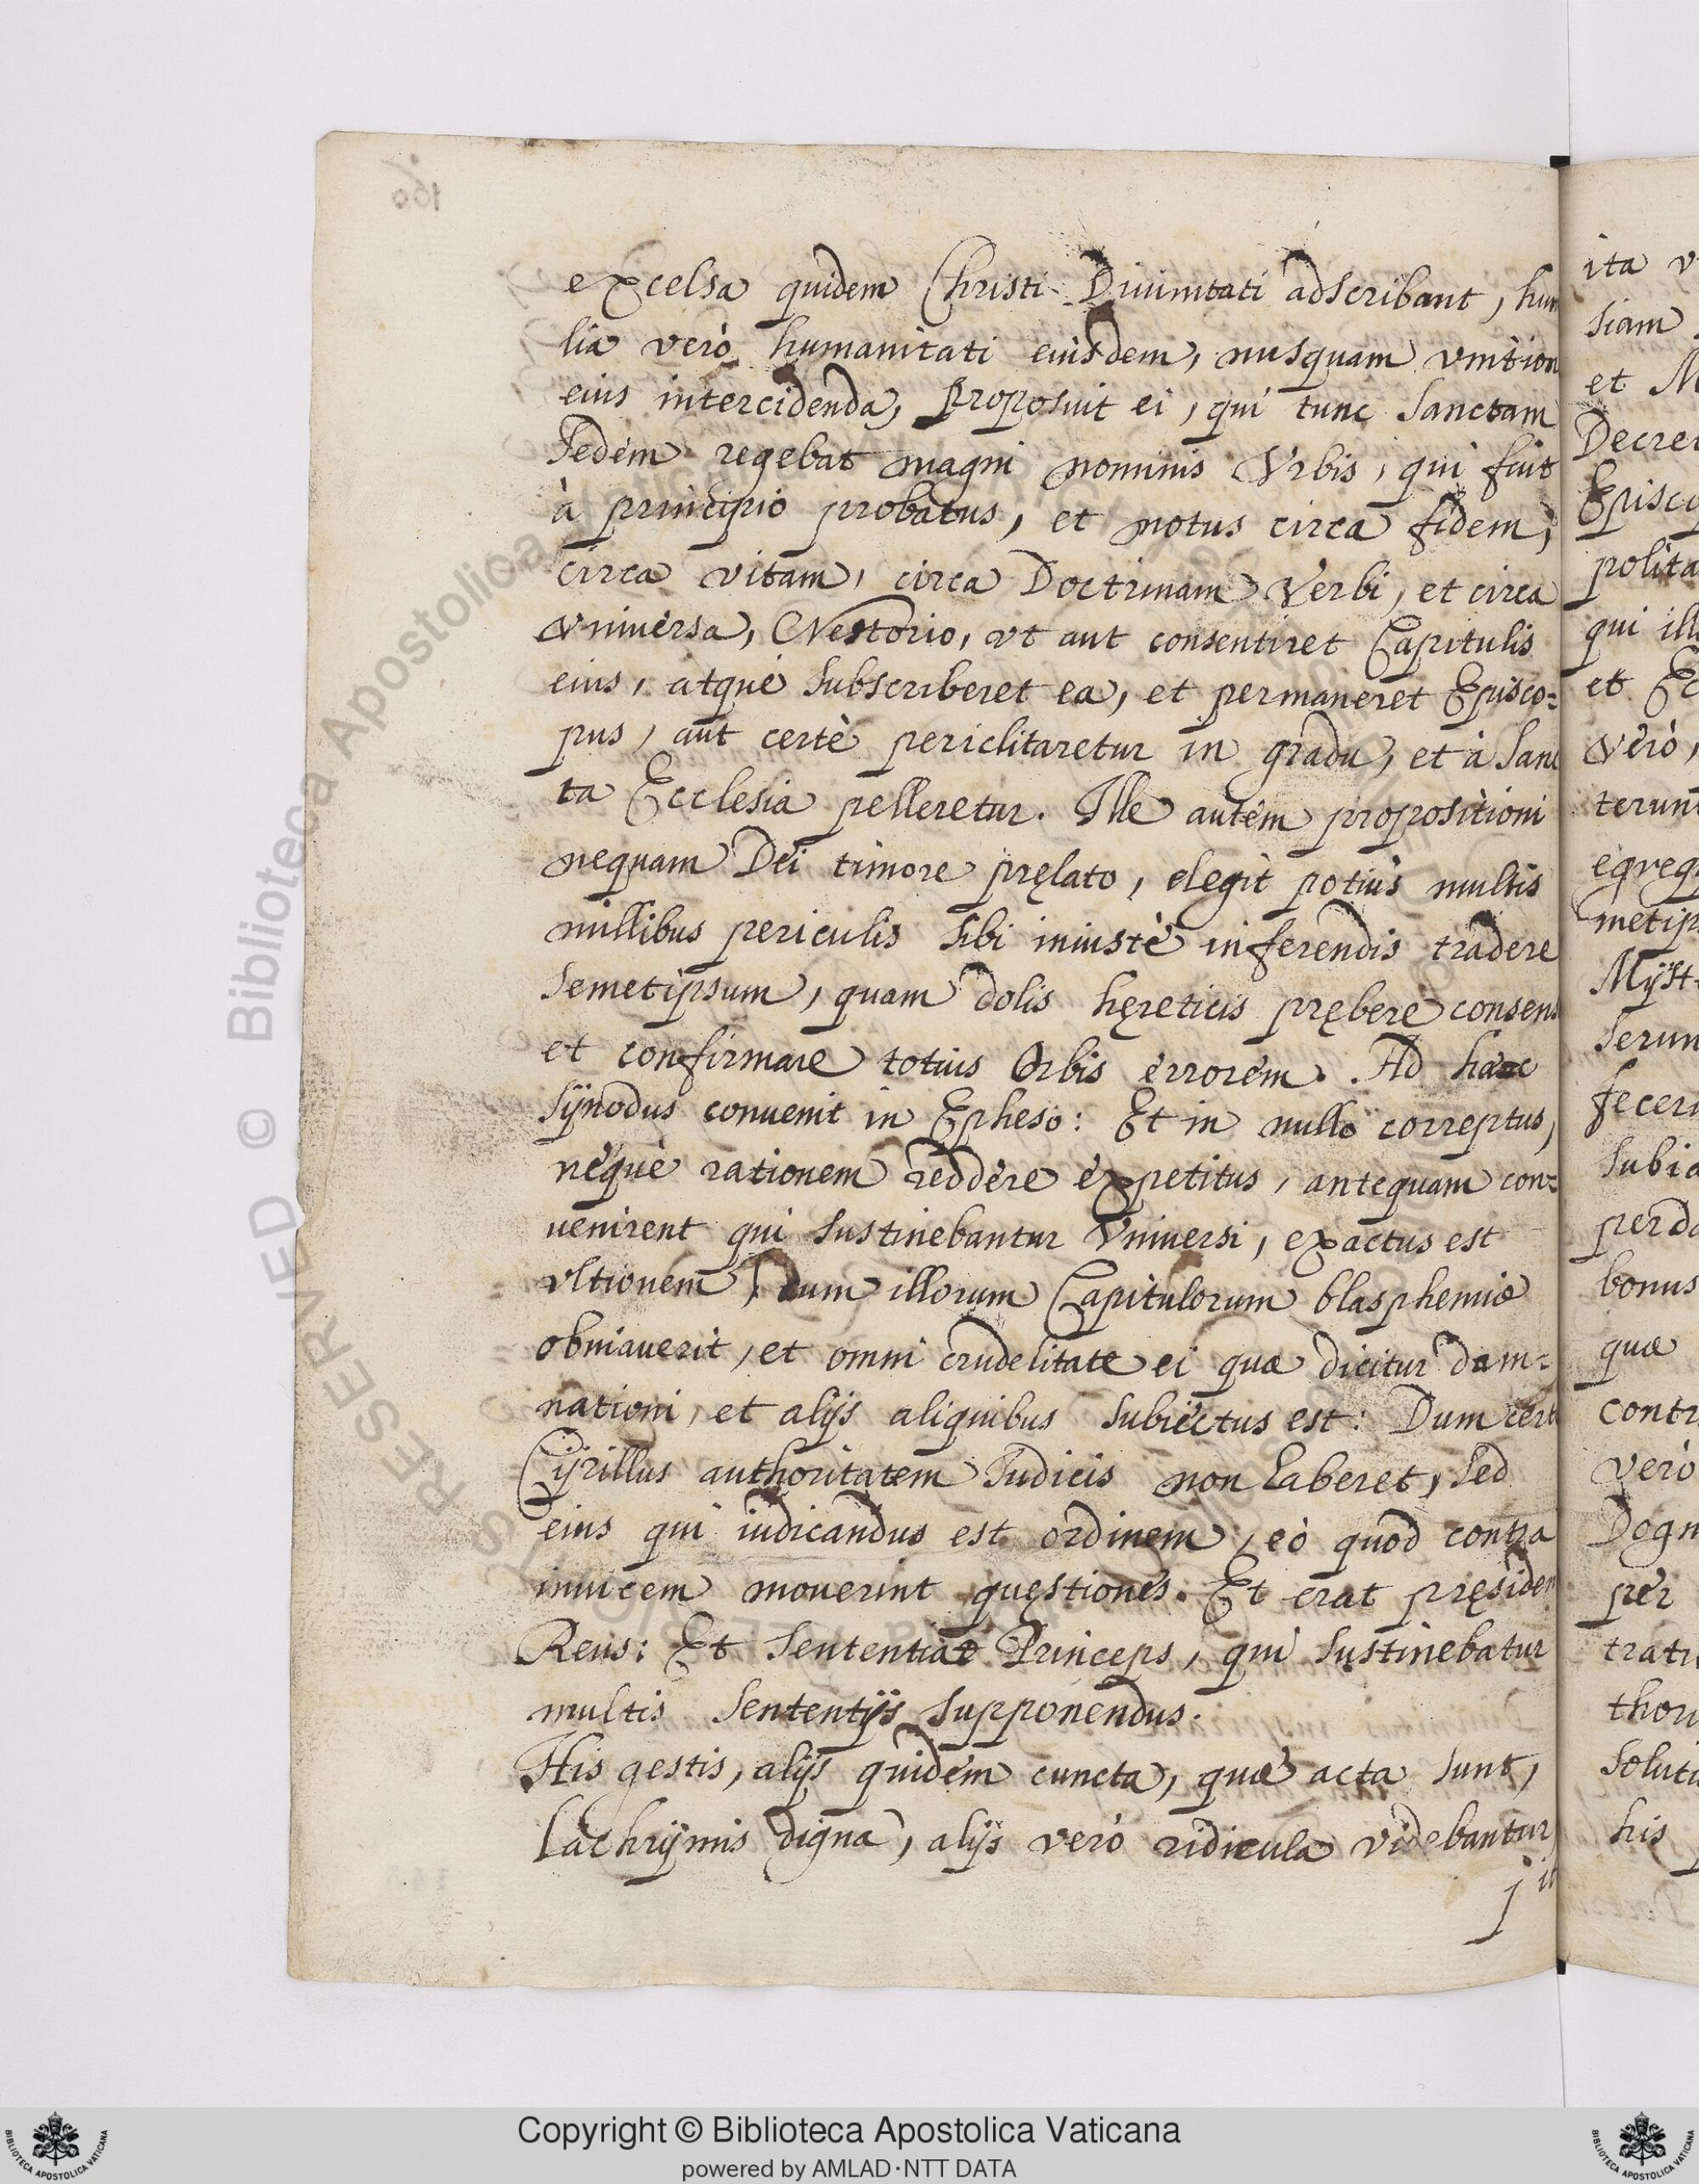 excelsa quidem Christi Diuinitati adscribant, hum
lia verò humanitati eiusdem, nusquam vnition
eius intercidenda, proposuit ei, qui tunc Sanctam
Sedem regebat magni nominis Vrbis, qui fuit
à principio probatus, et notus circa fidem,
circa vitam, circa Doctrinam Verbi, et circa
vniuersa, Nestorio, vt aut consentiret Capitulis
eius, atque subscriberet ea, et permaneret Episco=
pus, aut certè periclitaretur in gradu, et à Sanc
ta Ecclesia pelleretur. Ille autem propositioni
nequam Dei timore pręlato, elegit potius multis
millibus periculis sibi iniustè inferendis tradere
semetipsum, quam dolis hęreticis prębere consens
et confirmare totius Orbis errorem. Ad haec
Sÿnodus conuenit in Epheso: Et in nullo correptus,
neque rationem reddere expetitus, antequam con=
uenirent qui sustinebantur Vniuersi, exactus est
vltionem, dum illorum Capitulorum blasphemie
obuiauerit, et omni crudelitate ei quæ dicitur dam=
nationi, et alijs aliquibus subiectus est: Dum certe
Cÿrillus authoritatem Iudicis non haberet, sed
eius qui iudicandus est ordinem, eò quod contra
inuicem mouerint quęstiones. Et erat pręsiden
Reus: Et Sententiae Princeps, qui sustinebatur
multis Sententijs supponendus.
His gestis, alijs quidem cuncta, quæ acta sunt,
lachrÿmis digna, alijs verò ridicula videbantur,
it
ita v
siam
et M
Decre
Episco
polita
qui ill
et Ec
verò,
terunt
egreg
metip
Mÿst
serun
fecer
subia
perd
bonus
quæ
contr
verò
Dogm
per
tratu
thori
solut
his
160
RESERVED © Biblioteca Apostolica
Copyright © Biblioteca Apostolica Vaticana
powered by AMLAD·NTT DATA
BIBLIOTECA APOSTOLICA VATICANA
BIBLIOTECA APOSTOLICA VATICANA